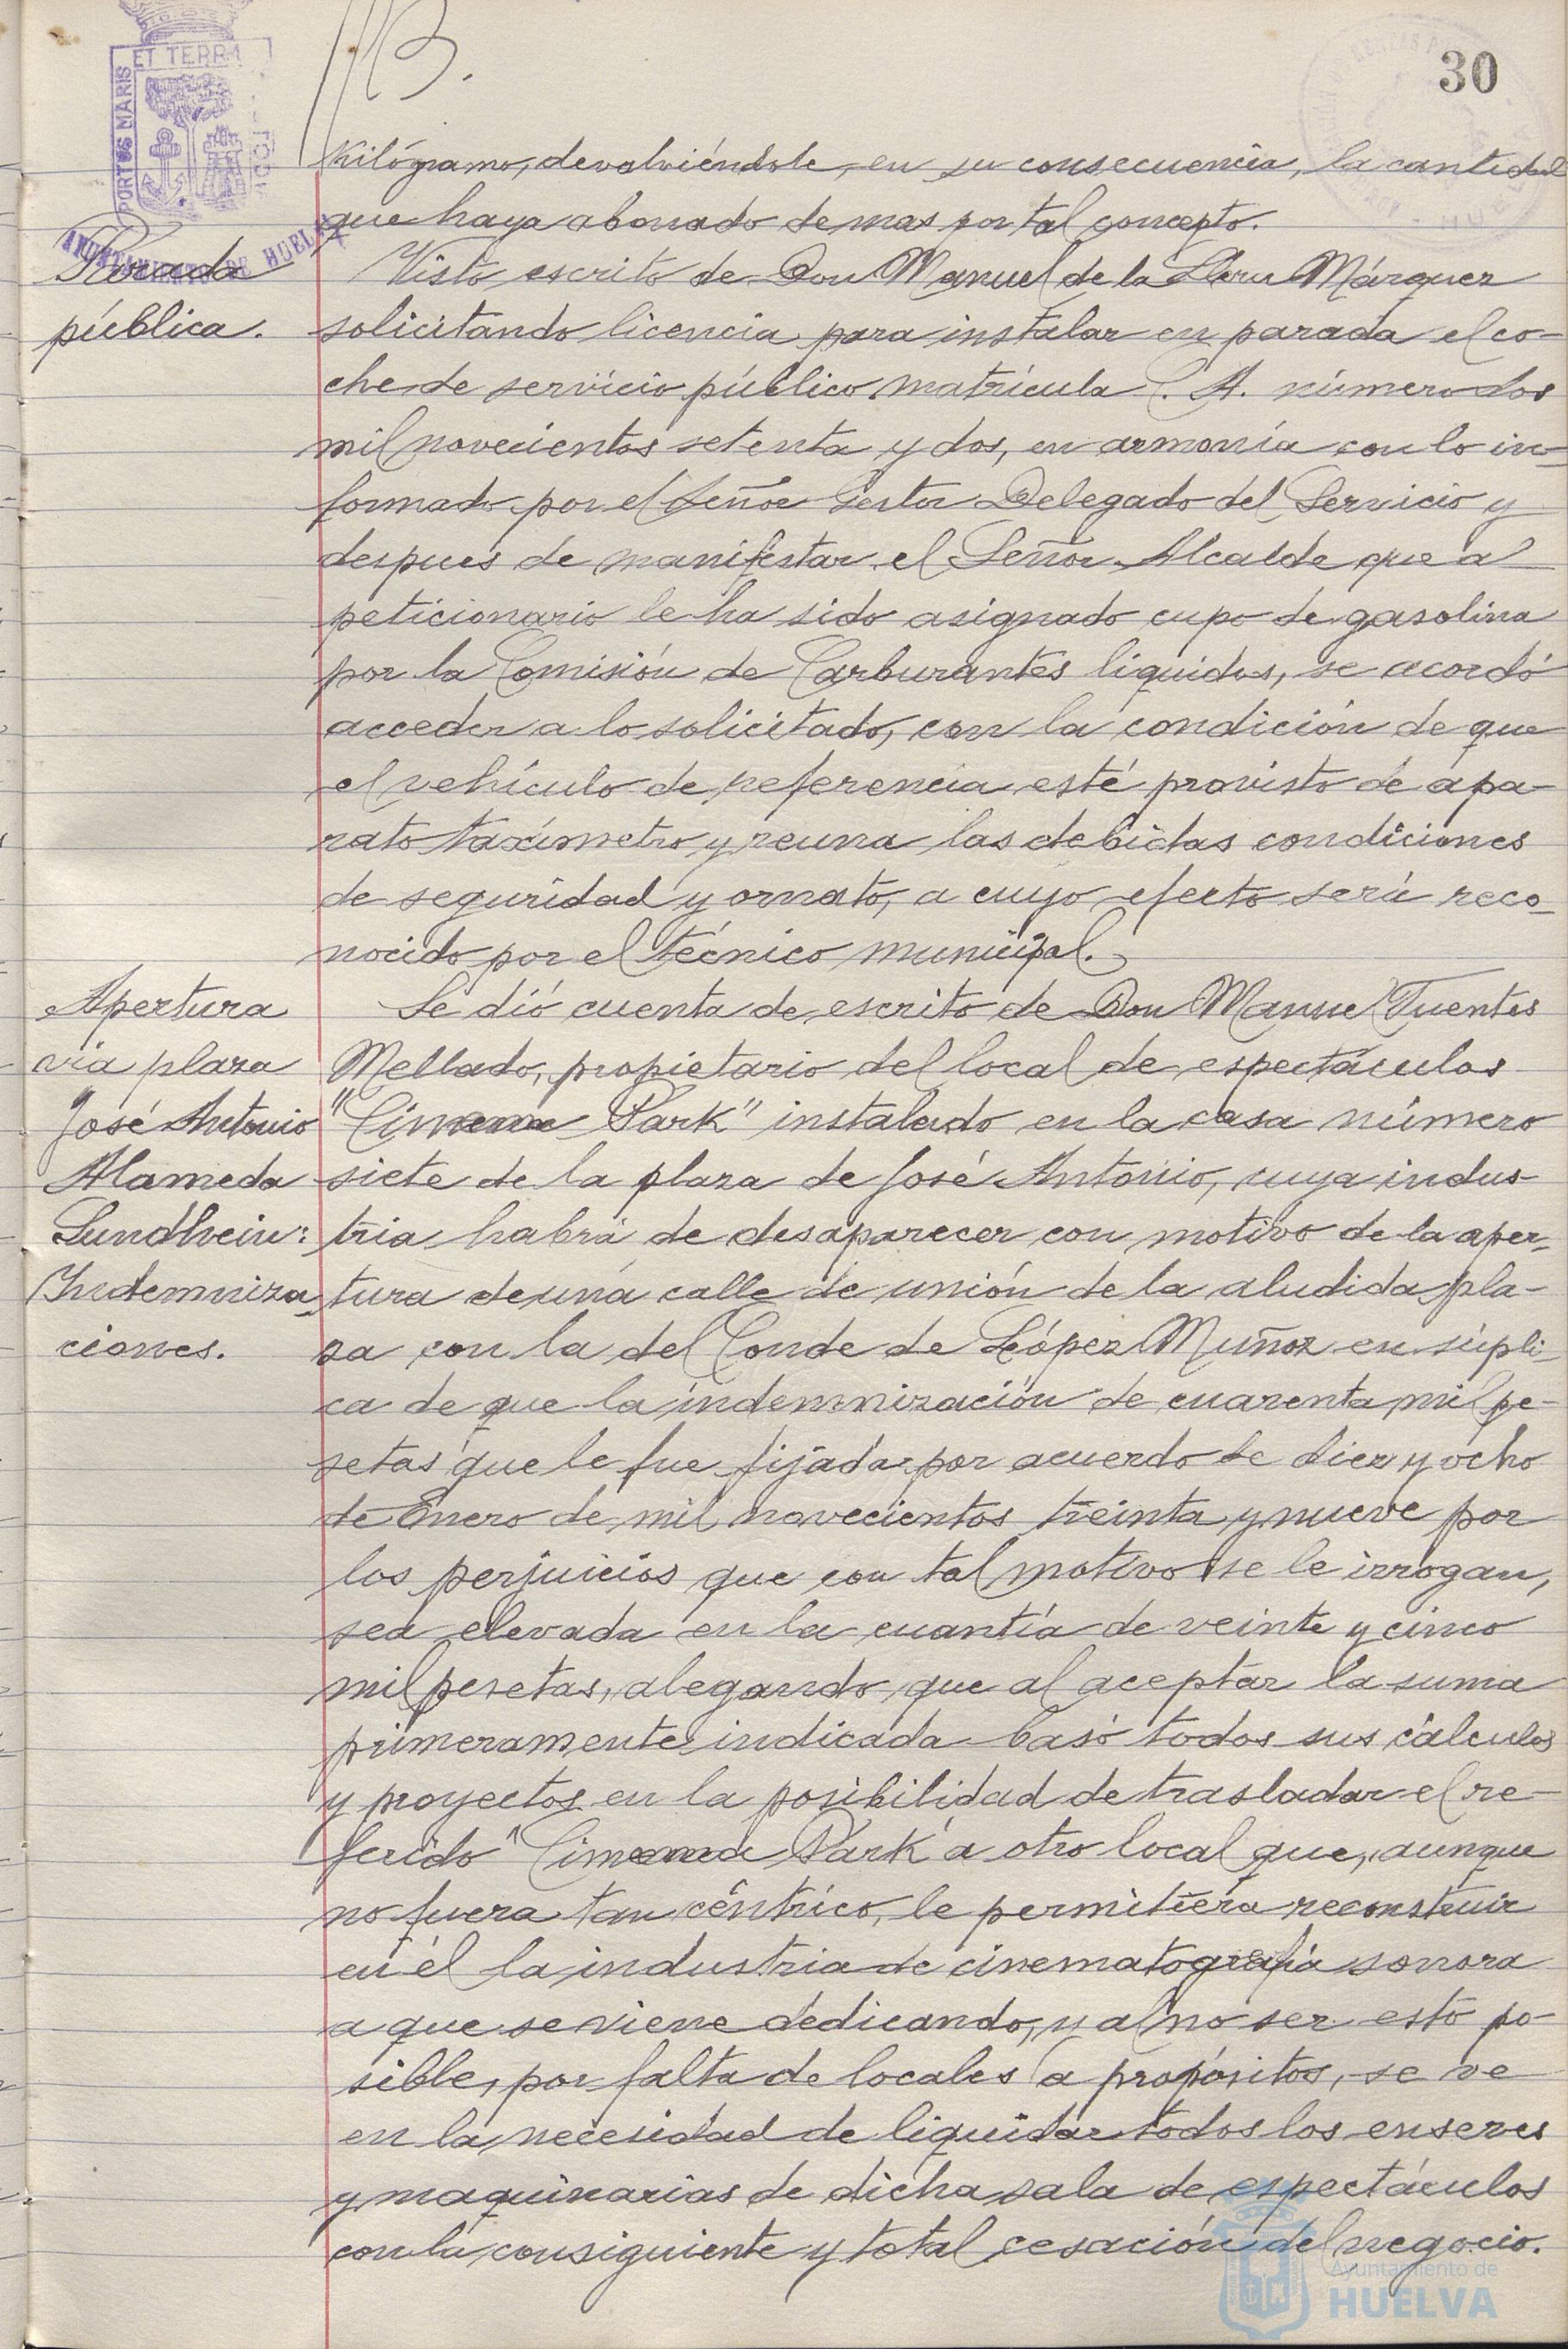 30
PORTUS MARIS ET TERRÆ
AYUNTAMIENTO DE HUELVA
Kilógramo, devolviéndole, en su consecuencia, la cantidad
que haya abonado de mas por tal concepto.
Parada
pública.
Visto escrito de Don Manuel de la Márquez
solicitando licencia para instalar en parada el co-
che de servicio público matrícula C. A. número dos
mil novecientos setenta y dos, en armonía con lo in-
formado por el Señor Gestor Delegado del Servicio y
despues de manifestar el Señor Alcalde que al
peticionario le ha sido asignado cupo de gasolina
por la Comisión de Carburantes líquidos, se acordó
acceder a lo solicitado, con la condición de que
el vehículo de referencia esté provisto de apa-
rato taxímetro y reuna las debidas condiciones
de seguridad y ornato, a cuyo efecto será reco-
nocido por el técnico municipal.
Apertura
vía plaza
José Antonio
Alameda
Sundheim:
Indemniza-
ciones.
Se dió cuenta de escrito de Don Manuel Fuentes
Mellado, propietario del local de espectáculos
"Cinema Park" instalado en la casa número
siete de la plaza de José Antonio, cuya indus-
tria habrá de desaparecer con motivo de la aper-
tura de una calle de unión de la aludida pla-
za con la del Conde de López Muñoz en súpli-
ca de que la indemnización de cuarenta mil pe-
setas que le fue fijada por acuerdo de diez y ocho
de Enero de mil novecientos treinta y nueve por
los perjuicios que con tal motivo se le irrogan,
sea elevada en la cuantía de veinte y cinco
mil pesetas, alegando que al aceptar la suma
primeramente indicada basó todos sus cálculos
y proyectos en la posibilidad de trasladar el re-
ferido "Cinema Park" a otro local que, aunque
no fuera tan céntrico, le permitiera reconstruir
en él la industria de cinematografía sonora
a que se viene dedicando, y al no ser esto po-
sible, por falta de locales a propósitos, se ve
en la necesidad de liquidar todos los enseres
y maquinarias de dicha sala de espectáculos
con la consiguiente y total cesación del negocio.
Ayuntamiento de
HUELVA